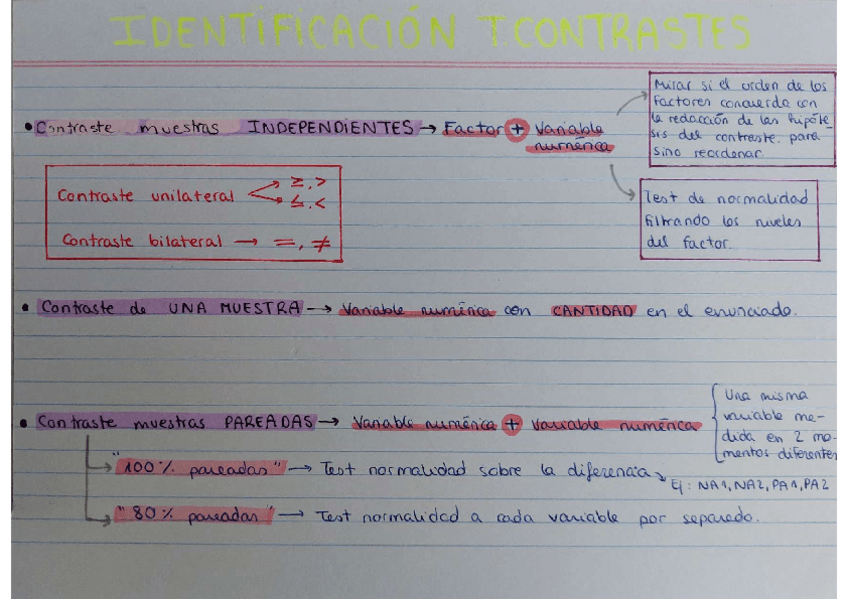 IDENTIFICACIÓN T.CONTRASTES
• Contraste muestras INDEPENDIENTES → Factor + Variable
numérica
Mirar si el orden de los
factores concuerda con
la redacción de las hipóte-
sis del contraste. para
sino reordenar.
Test de normalidad
filtrando los niveles
del factor.
Contraste unilateral ≥, >
≤, <
Contraste bilateral → =, ≠
• Contraste de UNA MUESTRA → Variable numérica con CANTIDAD en el enunciado.
• Contraste muestras PAREADAS → Variable numérica + Variable numérica
Una misma
variable me-
dida en 2 mo-
mentos diferentes
"100% pareadas" → Test normalidad sobre la diferencia
Ej: NA1, NA2, PA1, PA2
"80% pareadas" → Test normalidad a cada variable por separado.